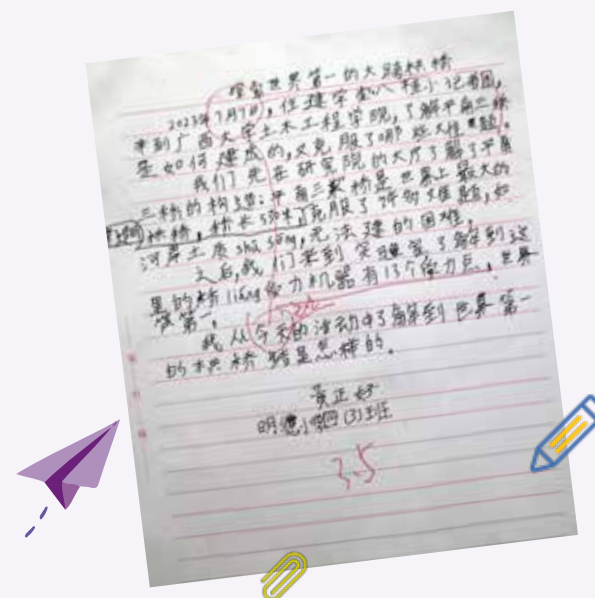 世界第一的大跨拱桥
2023年7月7日,住建学和八桂小记者团,
来到广西大学土木工程学院,了解平南三桥
是如何建成的,又克服了哪些大难题。
我们先在研究院的大厅了解了平南
三桥的构造:平南三桥是世界上最大的
拱桥,桥长 克服了许多难题,如
河岸土质shū sōng,无法建的困难。
之后,我们来到实验室了解到这
里的桥liáng受力机器有13个受力点,世界
第一。
我从今天的活动中了解到世界第一
的拱桥 是怎样的。
黄正好
明德小学四(3)班
35